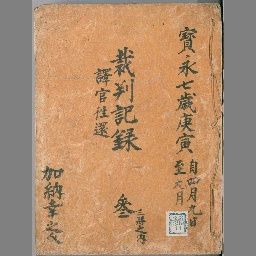 寳永七歲庚寅
自四月九日
至六月
裁判記録
譯官往還
叄
三冊之内
加納幸之